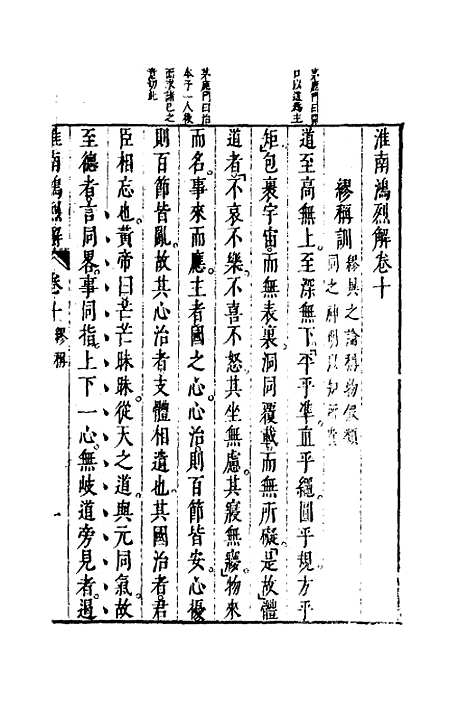 淮南鴻烈解卷十
繆稱訓
繆異之論稱物假類
同之神明以知所貴
道至高無上至深無下平乎準直乎繩圓乎規方乎
矩包裹宇宙而無表裏洞同覆載而無所礙是故體
道者不哀不樂不喜不怒其坐無慮其寢無夢物來
而名事來而應主者國之心心治則百節皆安心擾
則百節皆亂故其心治者支體相遺也其國治者君
臣相忘也黃帝曰芒芒昧昧從天之道與元同氣故
至德者言同畧事同指上下一心無歧道旁見者遏
淮南鴻烈解
卷十繆稱
一
茅鹿門曰開
口以道爲主
茅鹿門曰治
本于一人後
面求諸己之
意切此